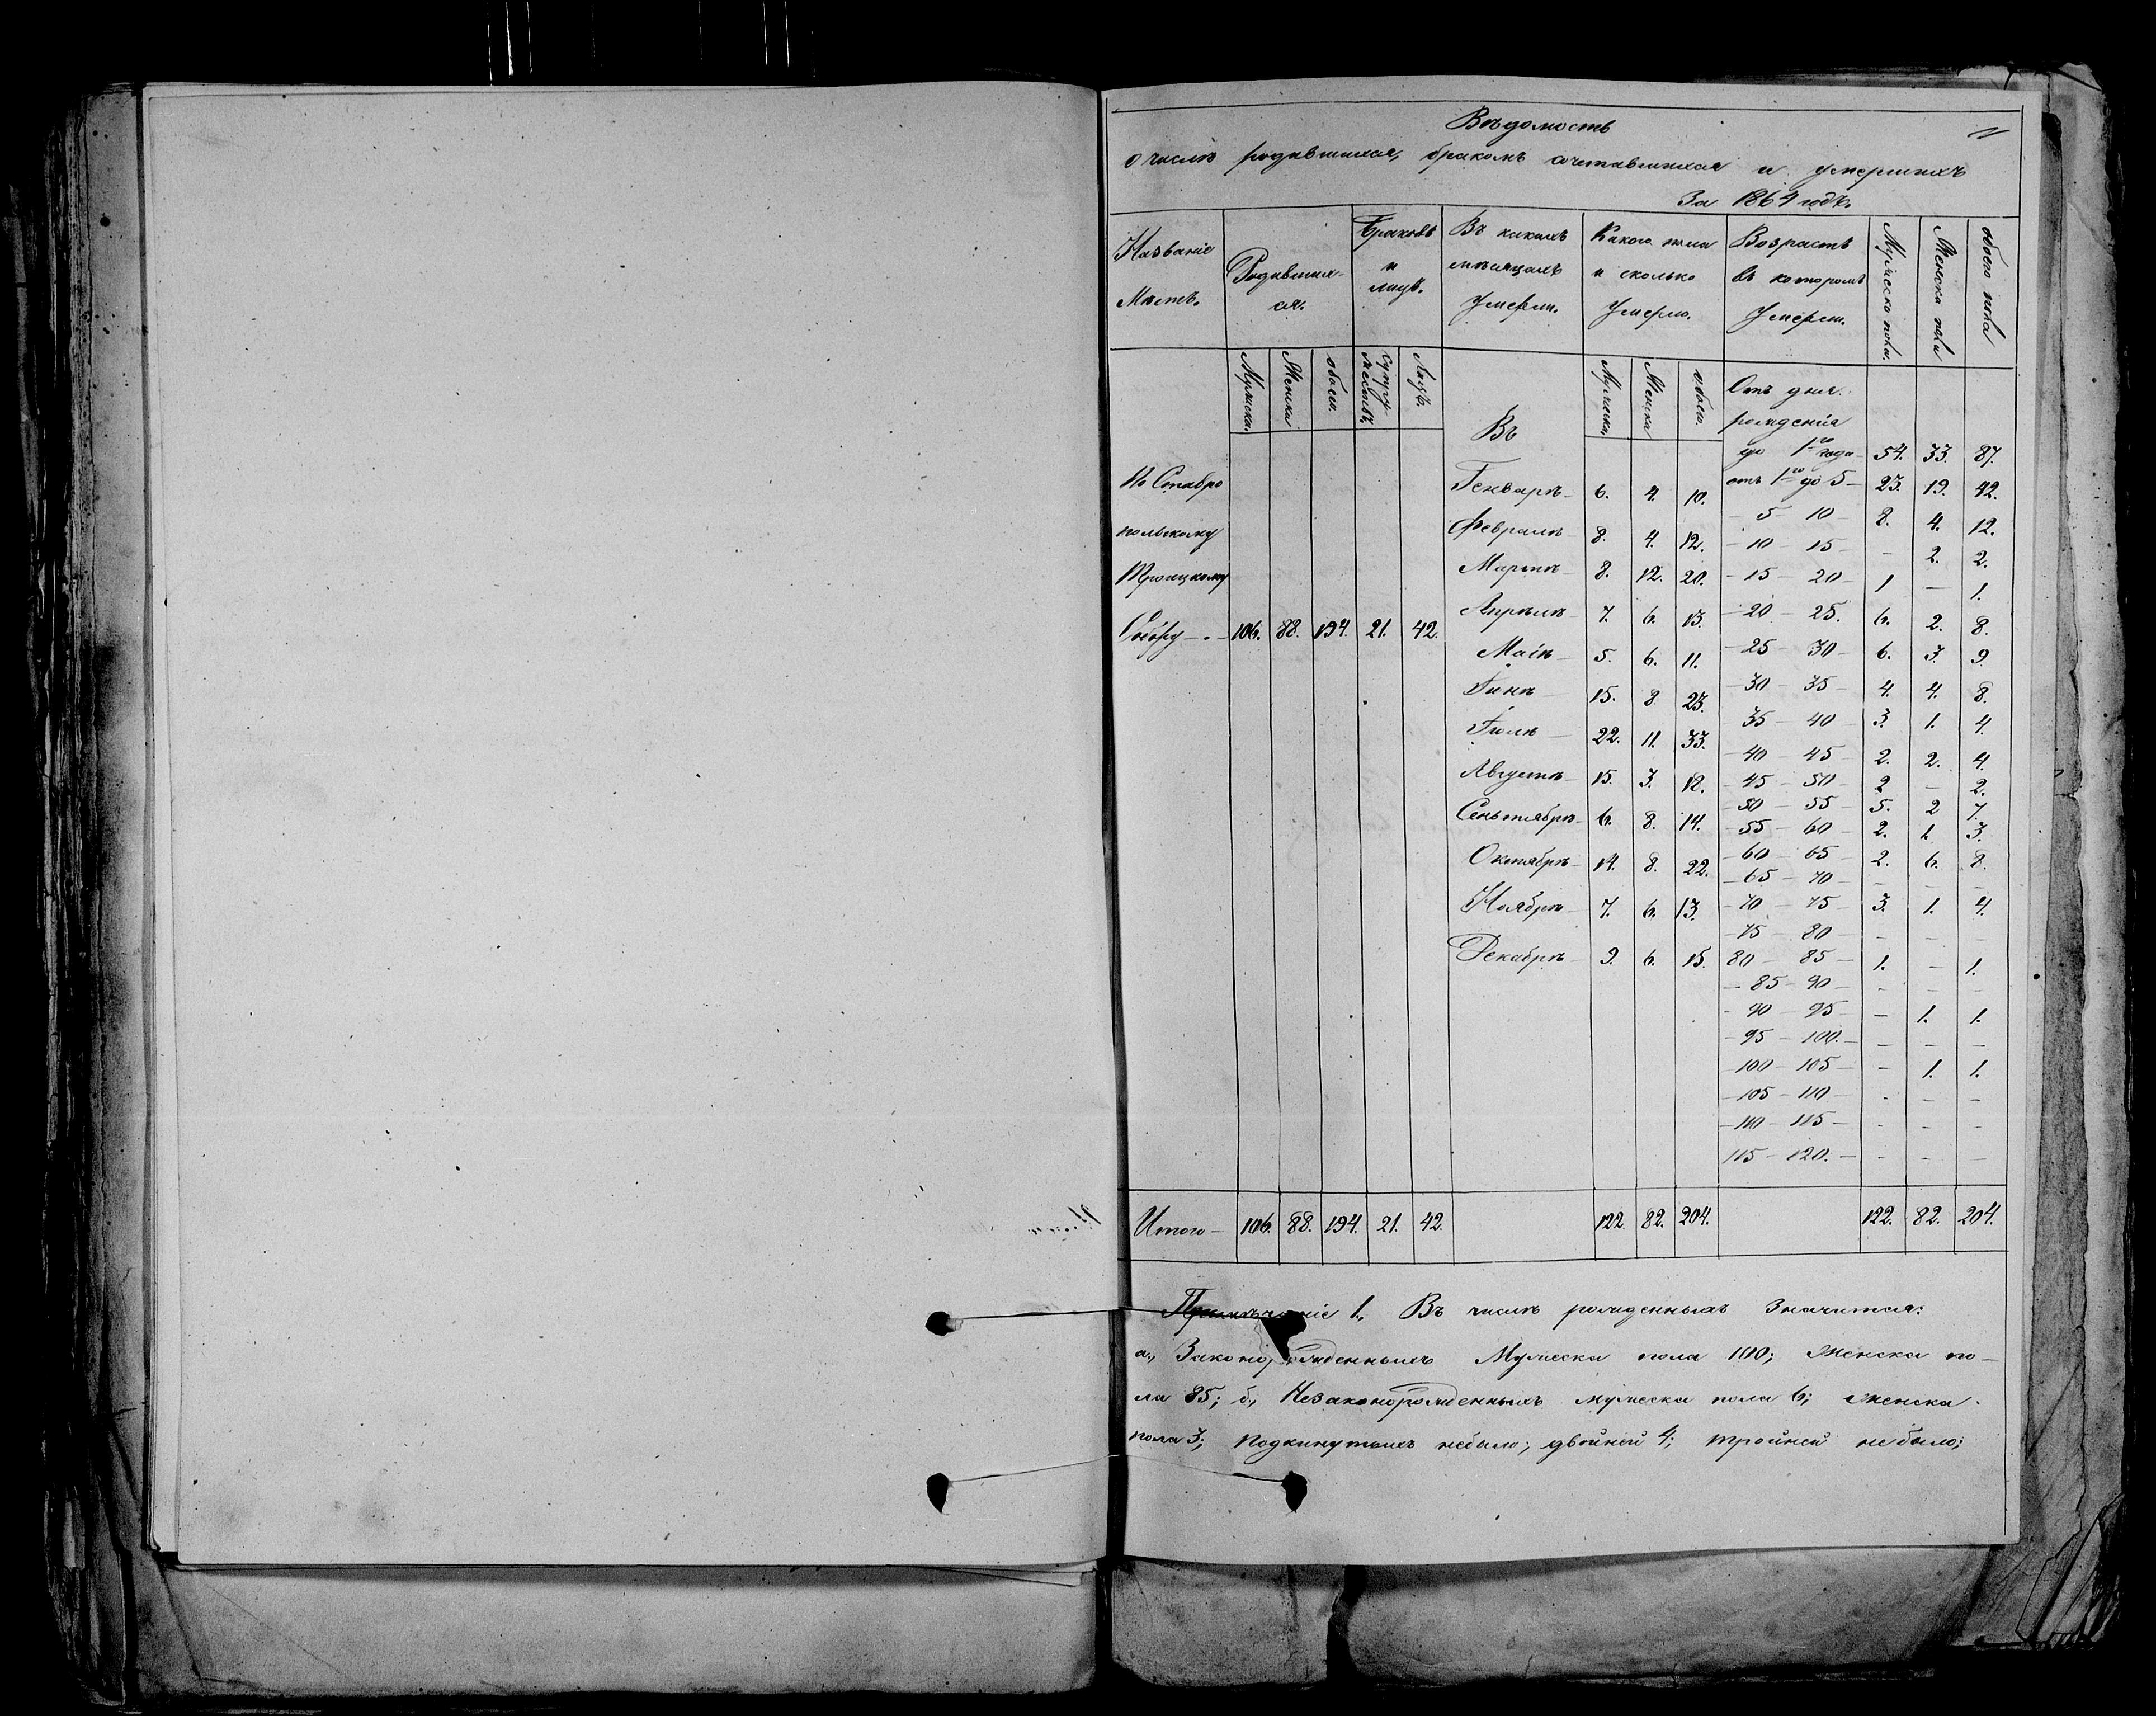 Вѣдомость
о числѣ родившихся, бракомъ сочетавшихся и умершихъ
За 1864 годъ.
Названіе Мѣстъ. Родивших-ся. Браковъ и лицъ. Въ какихъ мѣсяцахъ Умерли. Какого пола и сколько Умерло. Возрастъ въ которомъ Умерли. Мужеска пола. Женска пола обоего пола
Мужеска. Женска обоего. Супружествъ Лицъ. Мужеска. Женска обоего.
Въ
Отъ дня
рожденія
до 1го года 54. 33. 87.
По Ставро
польскому
Троицкому
Собору 106. 88. 194. 21. 42.
Генварѣ 6. 4. 10.
Февралѣ 8. 4. 12.
Мартѣ 8. 12. 20.
Апрѣлѣ 7. 6. 13.
Маіѣ 5. 6. 11.
Іюнѣ 15. 8 23.
Іюлѣ 22. 11. 33.
Августѣ 15. 3. 18.
Сеньтябрѣ 6. 8. 14.
Октябрѣ 14. 8. 22.
Ноябрѣ 7. 6. 13.
Декабрѣ 9. 6. 15.
отъ 1го до 5 23. 19. 42.
5 10 8. 4. 12.
10 15 - 2. 2.
15 20 1 - 1.
20 25. 6. 2. 8.
25 30 6. 3. 9.
30 35 4. 4. 8.
35 40 3. 1. 4.
40 45 2. 2. 4.
45 50 2 - 2.
50 55 5. 2 7.
55 60 2. 1. 3.
60 65 2. 6. 8.
65 70 - - -
70 75 3. 1. 4.
75 80 - - -
80 85 1. - 1.
85 90 - - -
90 95 - 1. 1.
95 100. - - -
100 105 - 1. 1.
105 110 - - -
110 115 - - -
115 120. - - -
Итого 106. 88. 194. 21. 42. 122. 82. 204. 122. 82. 204.
Примѣчаніе 1., Въ числѣ рожденныхъ Значится:
а., Законорожденныхъ Мужеска пола 100; Женска по-
ла 85; б., Незаконорожденныхъ мужеска пола 6; женска
пола 3; подкинутыхъ небыло; двойней 4; тройней небыло;